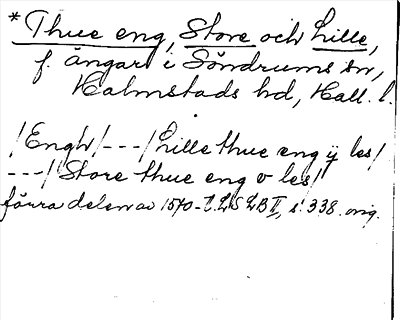 *Thue eng, Store och Lille,
f. ängar i Söndrums sn,
Halmstads hd, Hall. l.
/Engh/---/Lille thue æng ÿ les/
---/Store thue eng v les/
förra delen av 1570- LB II, s. 338. orig.